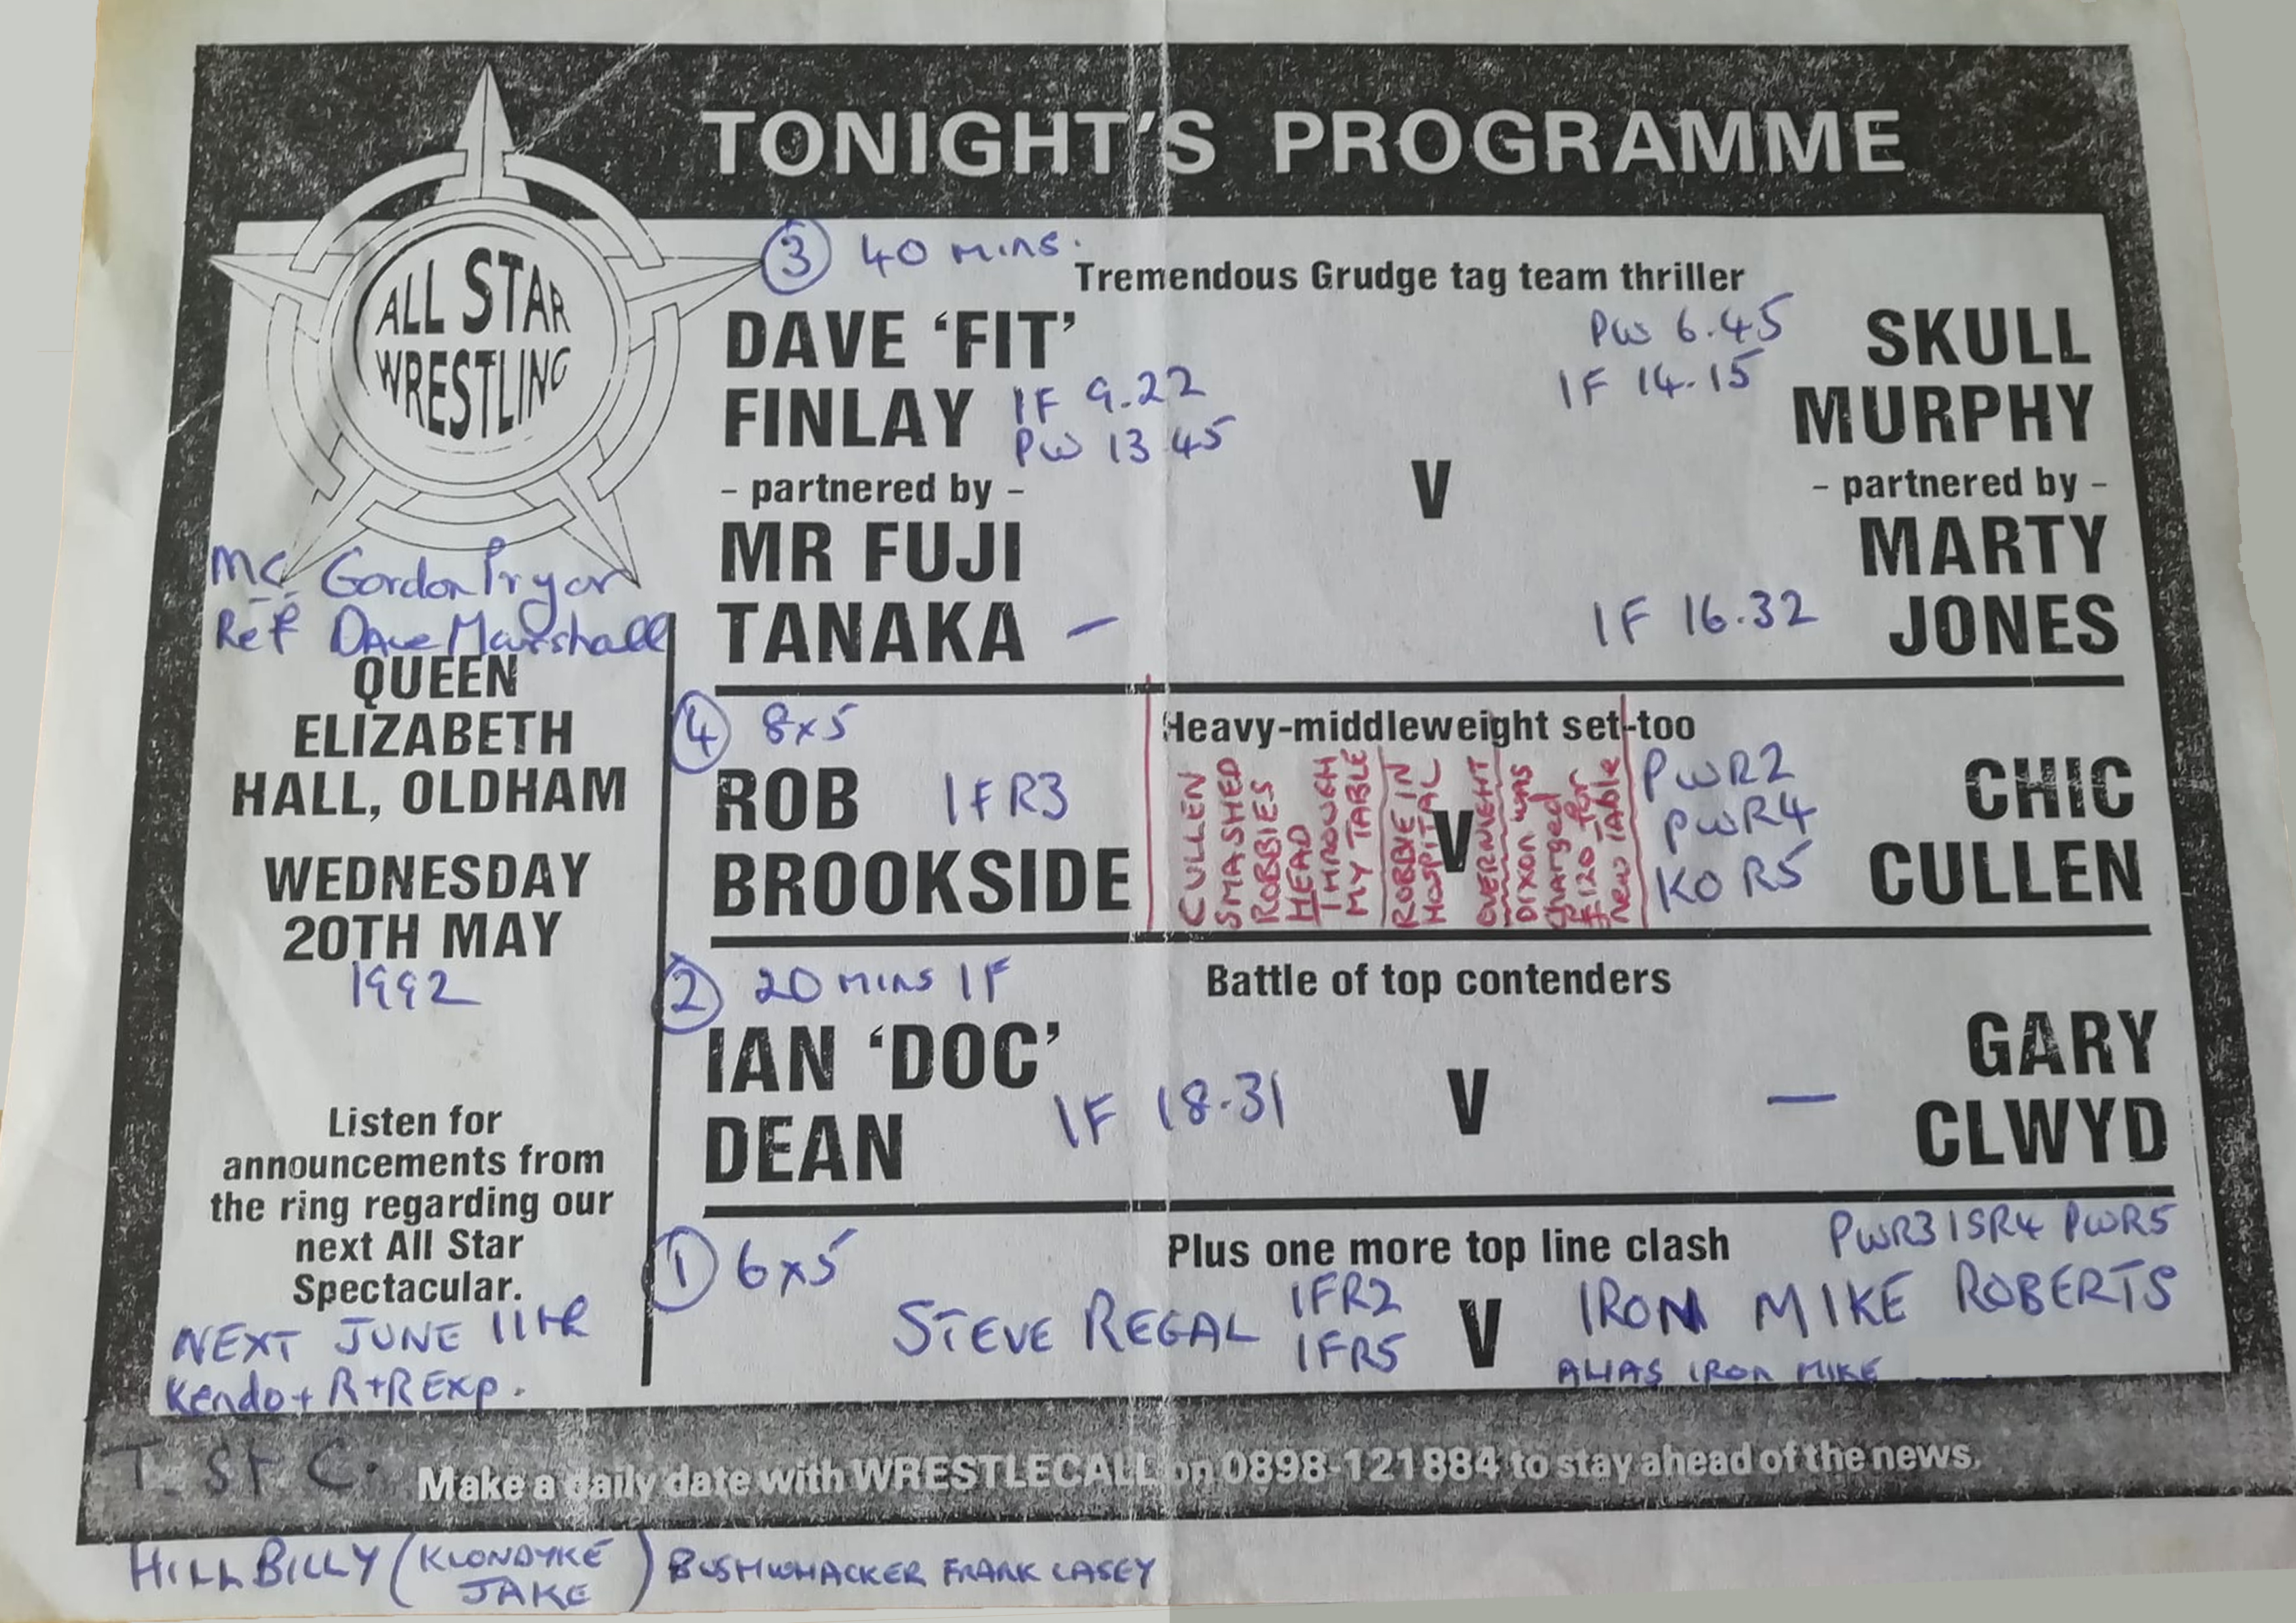 TONIGHT'S PROGRAMME
ALL STAR
WRESTLING
MC Gordon Pryor
Ref Dave Marshall
QUEEN
ELIZABETH
HALL, OLDHAM
WEDNESDAY
20TH MAY
1992
Listen for
announcements from
the ring regarding our
next All Star
Spectacular.
NEXT JUNE 11th
Kendo + R+R Exp.
3 40 mins.
Tremendous Grudge tag team thriller
DAVE ‘FIT’
FINLAY
1F 9.22
PW 13 45
- partnered by -
MR FUJI
TANAKA –
V
PW 6.45
1F 14.15
SKULL
MURPHY
- partnered by -
MARTY
JONES
1F 16.32
4 8x5
Heavy-middleweight set-too
ROB
BROOKSIDE
1FR3
CULLEN
SMASHED
ROBBIES
HEAD
THROUGH
MY TABLE
ROBBIE IN
HOSPITAL
OVERNIGHT
DIXON WAS
charged
£120 for
new TABLE
V
PWR2
PWR4
KO R5
CHIC
CULLEN
2 20 mins 1F
Battle of top contenders
IAN ‘DOC’
DEAN
1F 18.31
V
–
GARY
CLWYD
1 6x5
Plus one more top line clash
PWR3 1SR4 PWR5
STEVE REGAL
1FR2
1FR5
V
IRON MIKE ROBERTS
ALIAS IRON MIKE
Make a daily date with WRESTLECALL on 0898-121884 to stay ahead of the news.
HILLBILLY (KLONDYKE JAKE) BUSHWHACKER FRANK CASEY